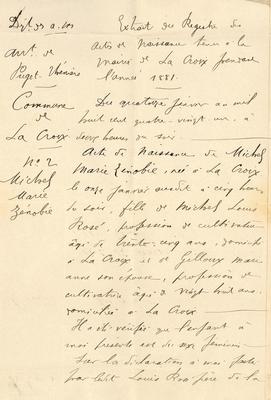 Dépt des a. mes
Arrt. de
Puget-Théniers
Commune
de
La Croix
N° 2
Michel
Marie
Zénobie
Extrait du Registre des
actes de Naissance tenu à la
mairie de La Croix pendant
l'année 1881.
Du quatorze février an mil
huit cent quatre-vingt un, à
deux heures du soir.
Acte de Naissance de Michel
Marie Zénobie, née à La Croix
le onze janvier courant à cinq heures
du soir, fille de Michel Louis
Rose, profession de cultivateur
âgé de trente cinq ans, domicilié
à La Croix et de Gilloux Marie
anne son épouse, profession de
cultivatrice âgée de vingt huit ans,
domiciliée à La Croix
Il a été vérifié que l'enfant à
moi présenté est du sexe féminin
Sur la déclaration à moi faite
par ledit Louis Rose père de la